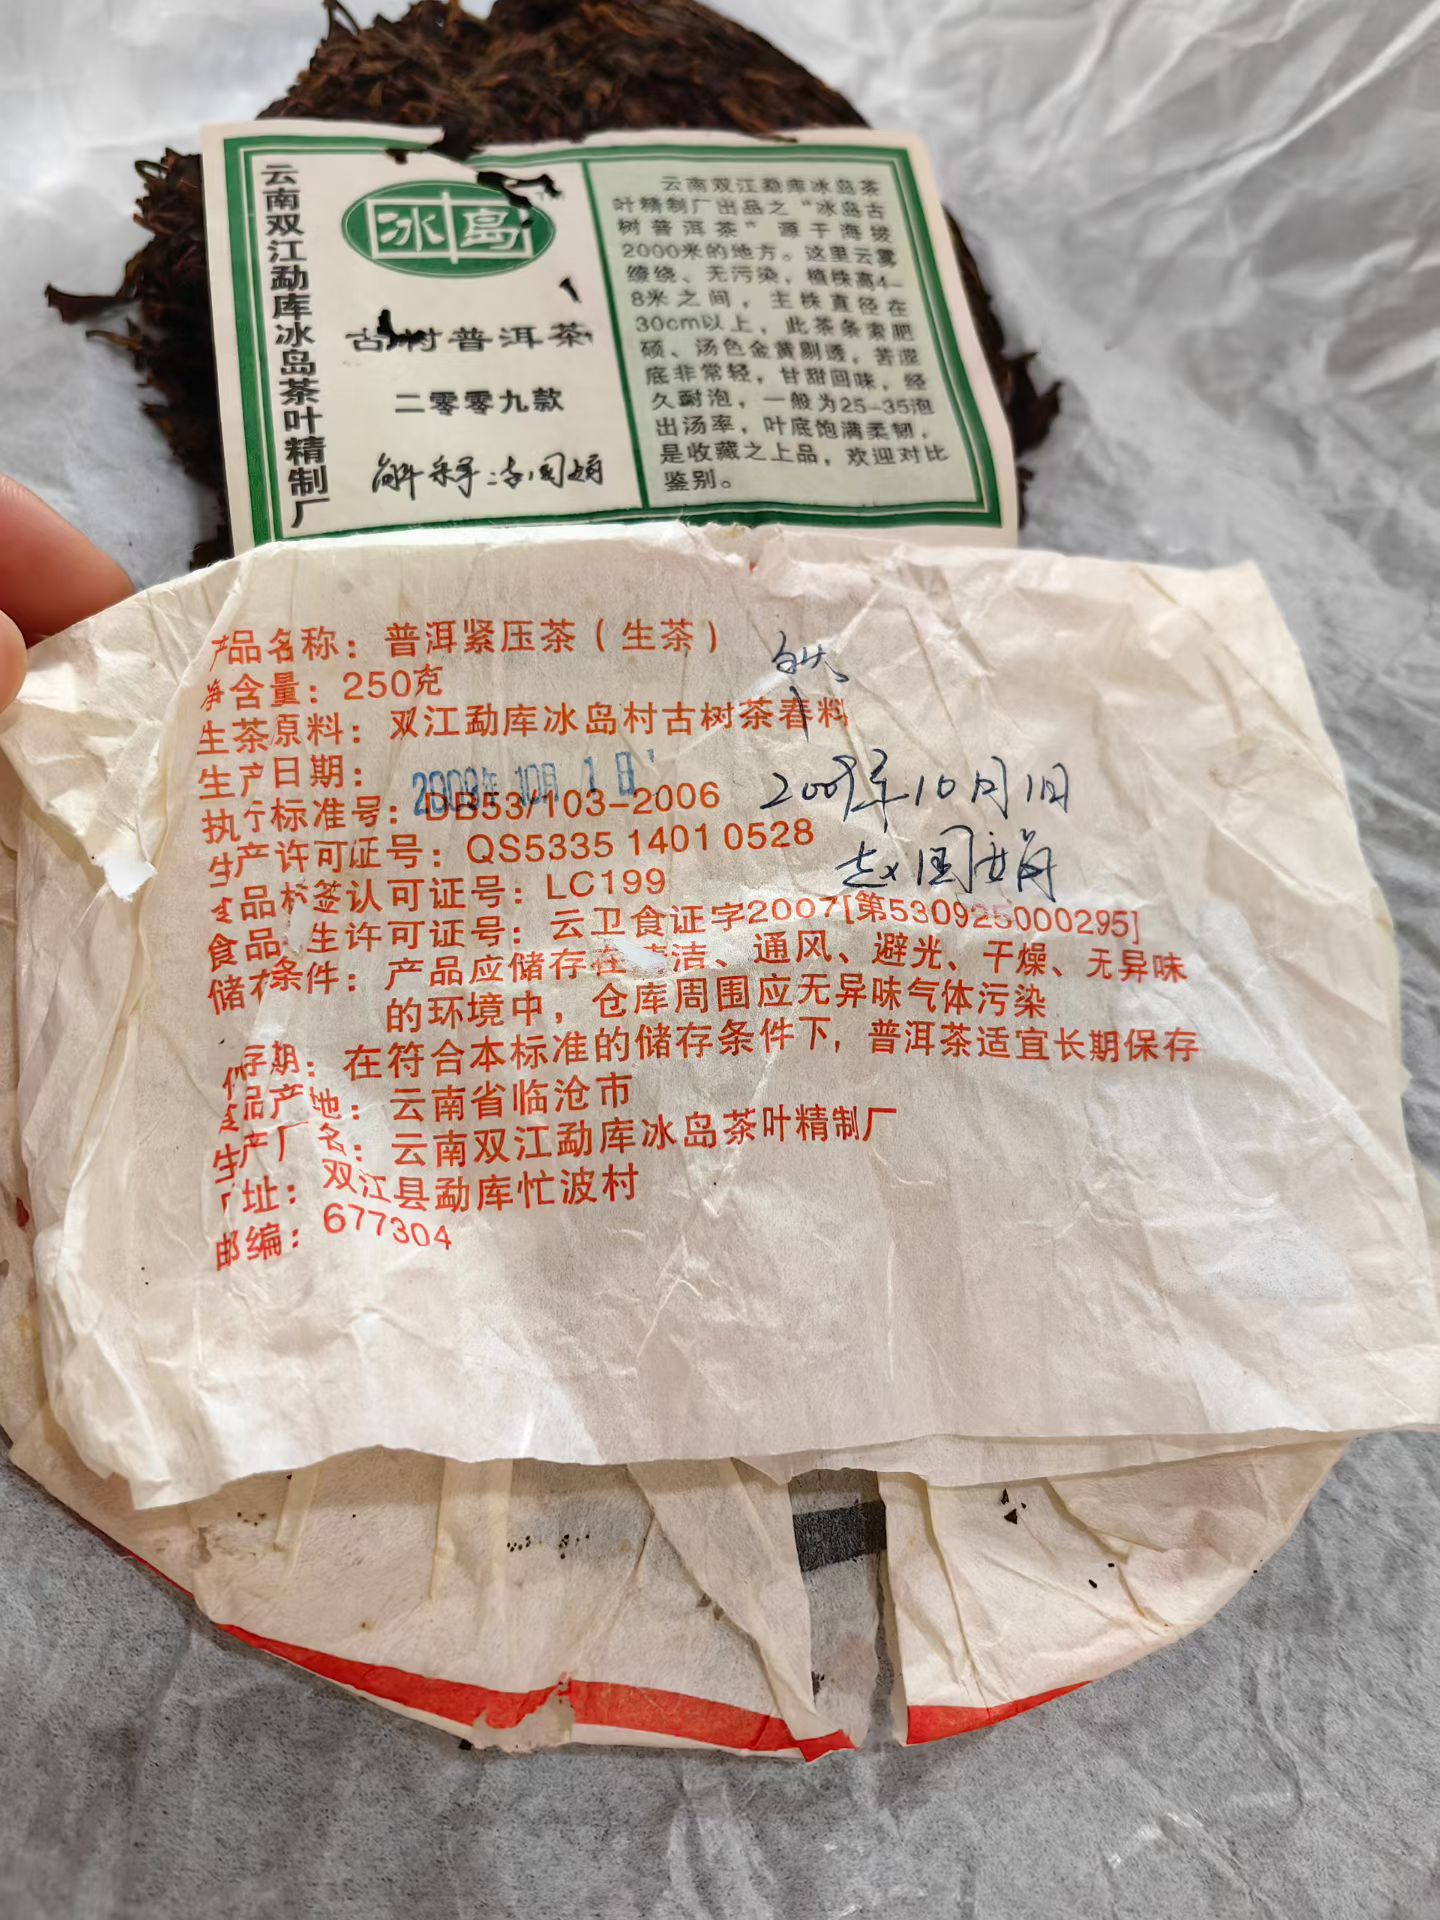 云南双江勐库冰岛茶叶精制厂
冰岛
古树普洱茶
二零零九款
云南双江勐库冰岛茶
叶精制厂出品之“冰岛古
树普洱茶”源于海拔
2000米的地方。这里云雾
缭绕、无污染，植株高4-
8米之间，主株直径在
30cm以上，此茶条索肥
硕、汤色金黄剔透，苦涩
底非常轻，甘甜回味，经
久耐泡，一般为25-35泡
出汤率，叶底饱满柔韧，
是收藏之上品，欢迎对比
鉴别。
产品名称：普洱紧压茶（生茶）
净含量：250克
生茶原料：双江勐库冰岛村古树茶春料
生产日期：2009年10月1日
2009年10月1日
执行标准号：DB53/103-2006
生产许可证号：QS5335 1401 0528
赵国娟
食品标签认可证号：LC199
食品卫生许可证号：云卫食证字2007[第530925000295]
储存条件：产品应储存在清洁、通风、避光、干燥、无异味
的环境中，仓库周围应无异味气体污染
保存期：在符合本标准的储存条件下，普洱茶适宜长期保存
食品产地：云南省临沧市
生产厂名：云南双江勐库冰岛茶叶精制厂
厂址：双江县勐库忙波村
邮编：677304